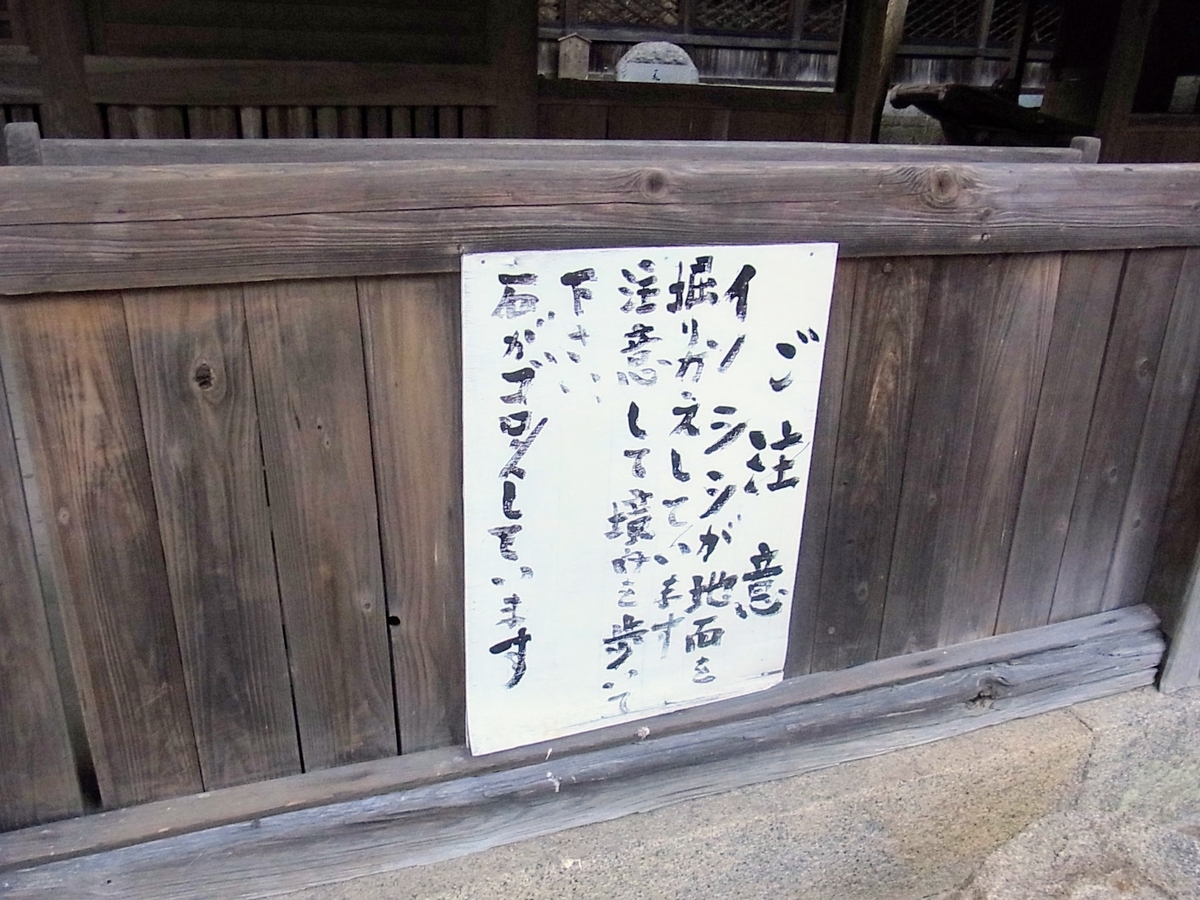 ご注意
イノシシが地面を
掘りカえしています
注意して境内を歩いて
下さい
石がゴロ〱しています